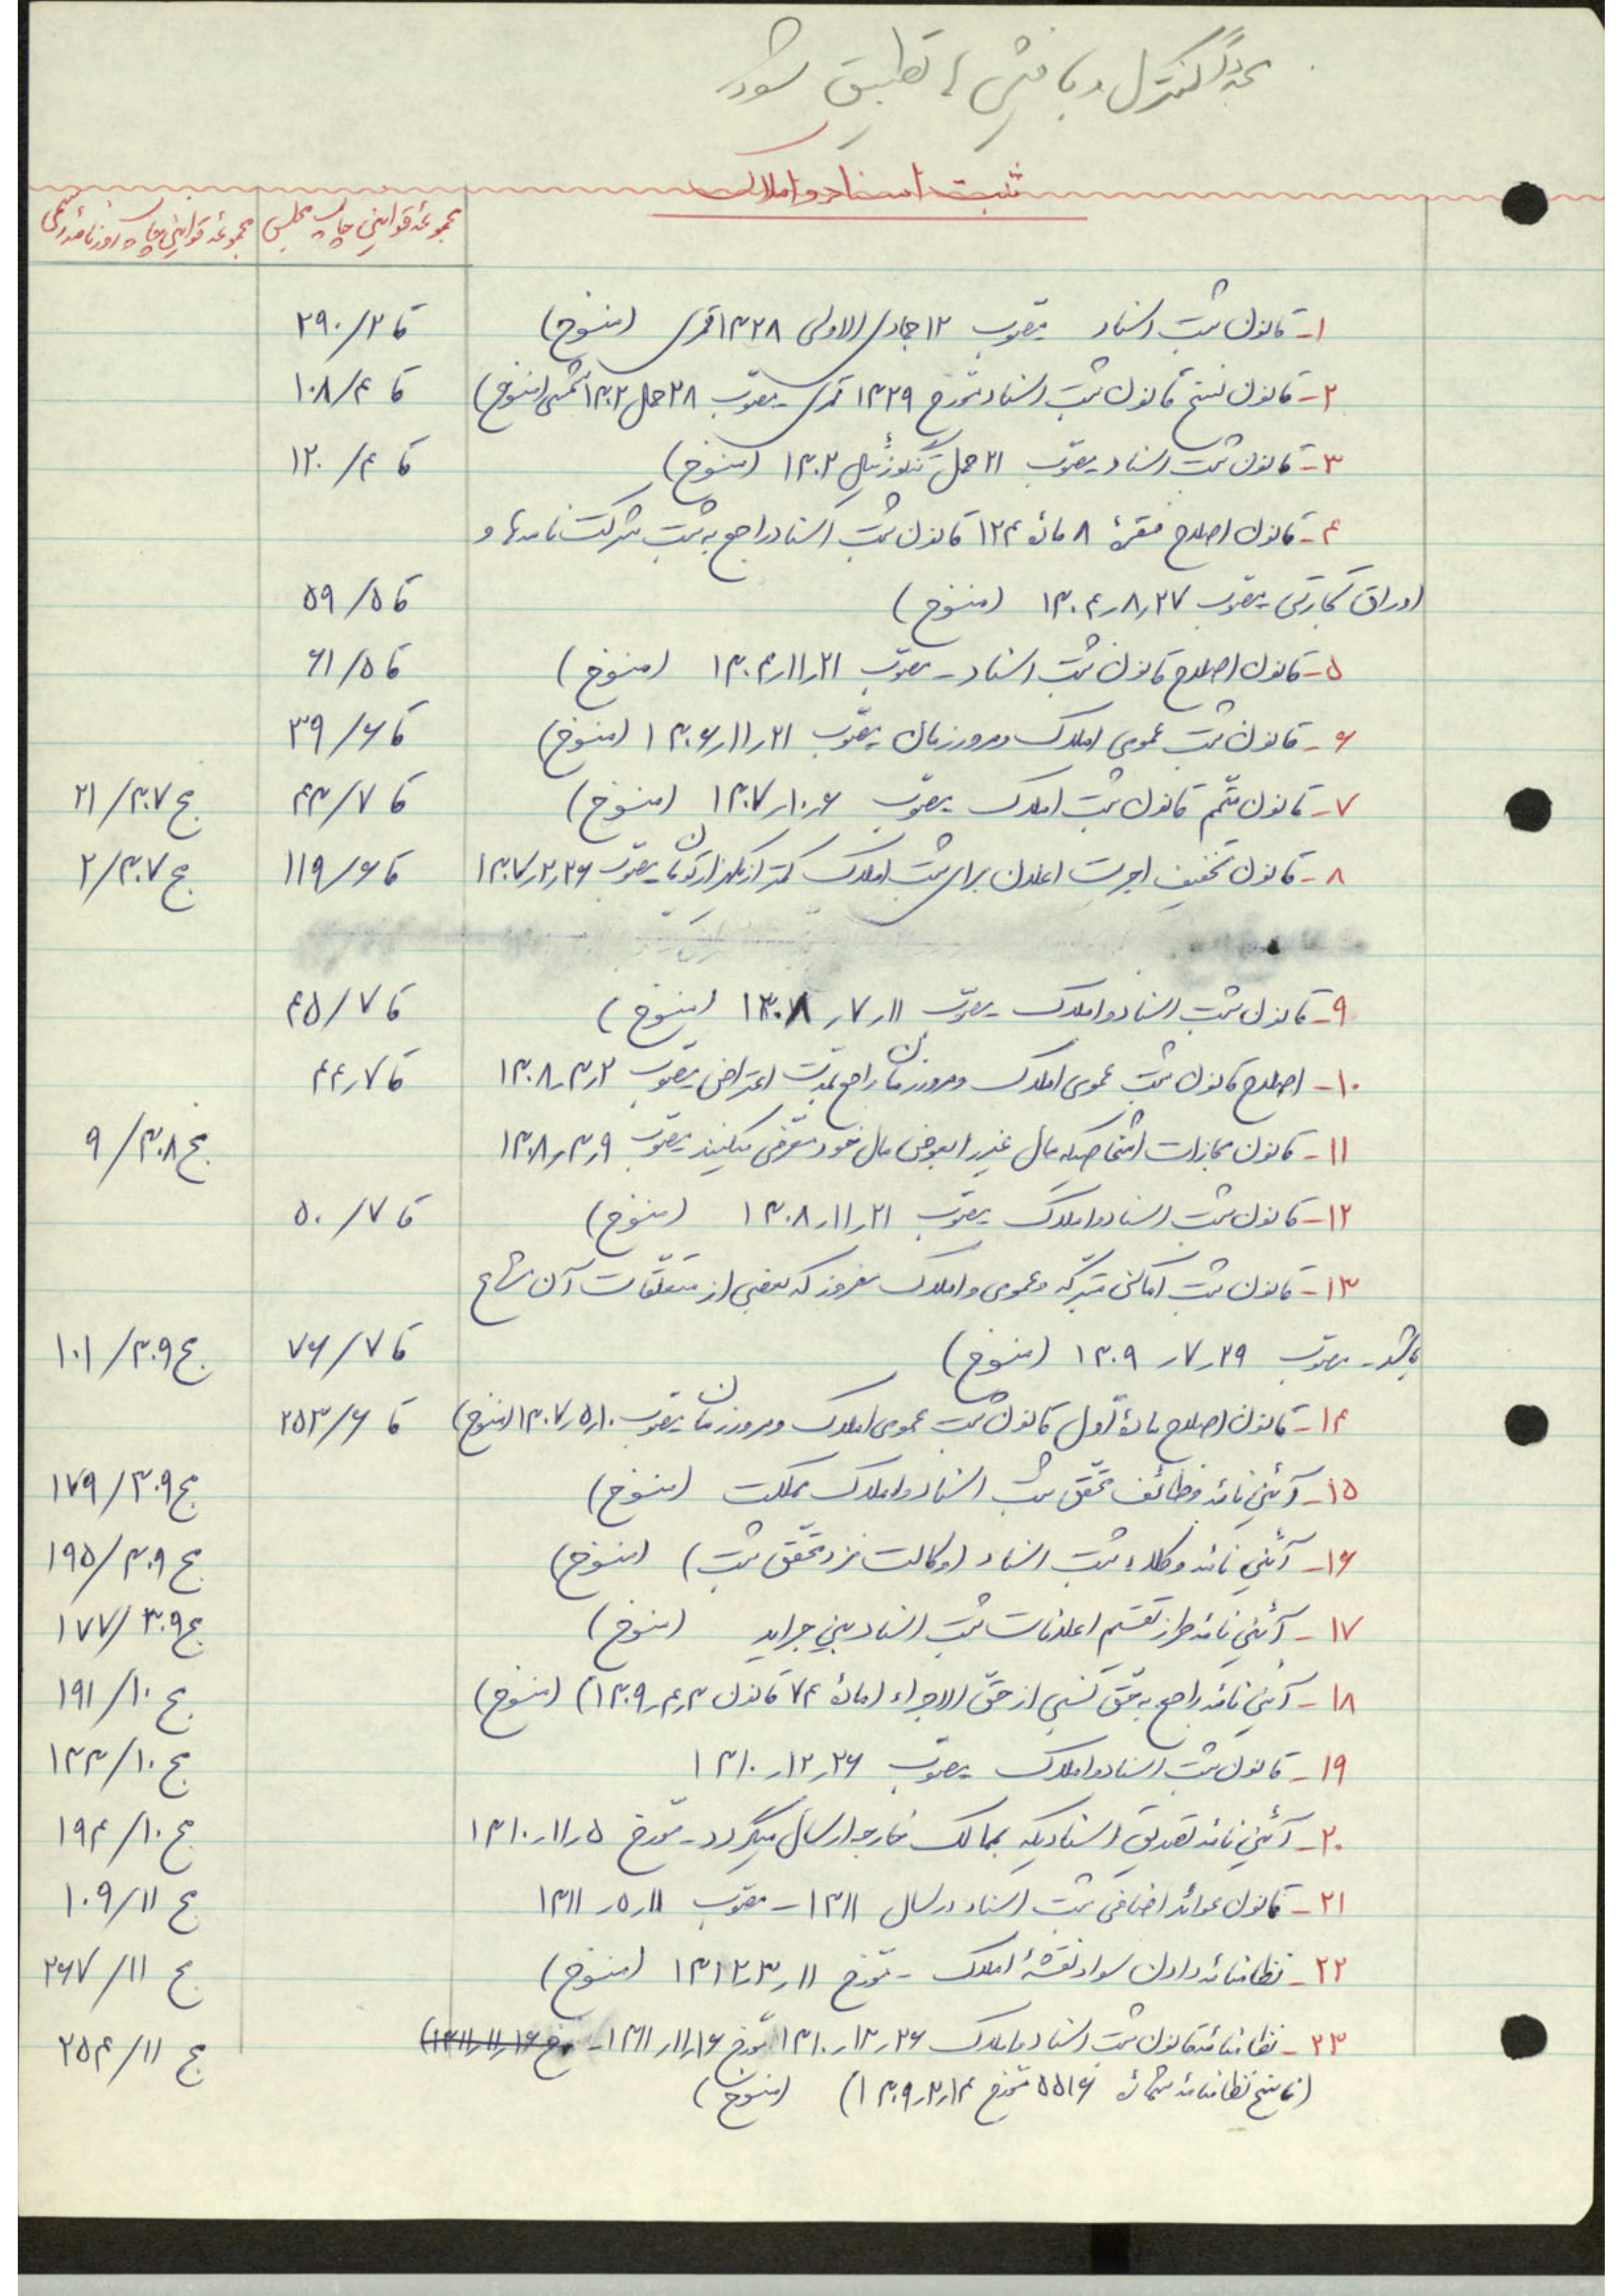 مجدداً کنترل و با فیش ها تطبیق شود
ثبت اسناد و املاک
مجموعهٔ قوانین چاپ مجلس مجموعهٔ قوانین چاپ روزنامهٔ رسمی
۱- قانون ثبت اسناد مصوب ۱۲ جمادی الاولی ۱۳۲۸ قمری (منسوخ) قا ۲/۲۹۰
۲- قانون نسخ قانون ثبت اسناد مورخ ۱۳۲۹ قمری مصوب ۲۸ حمل ۱۳۰۲ شمسی (منسوخ) قا ۴/۱۰۸
۳- قانون ثبت اسناد مصوب ۲۱ حمل تنگوزئیل ۱۳۰۲ (منسوخ) قا ۴/۱۲۰
۴- قانون اصلاح فقرهٔ ۸ مادهٔ ۱۲۴ قانون ثبت اسناد راجع به ثبت شرکت نامه‌ها و
اوراق تجارتی مصوب ۲۷ر۸ر۱۳۰۴ (منسوخ) قا ۵/۵۹
۵- قانون اصلاح قانون ثبت اسناد - مصوب ۲۱ر۱۱ر۱۳۰۴ (منسوخ) قا ۵/۶۱
۶- قانون ثبت عمومی املاک و مرور زمان مصوب ۲۱ر۱۱ر۱۳۰۶ (منسوخ) قا ۶/۳۹
۷- قانون متمم قانون ثبت املاک مصوب ۶ر۱۰ر۱۳۰۷ (منسوخ) قا ۷/۴۳ مج ۳۰۷/۲۱
۸- قانون تخفیف اجرت اعلان برای ثبت املاک کمتر از یکهزار تومان مصوب ۲۶ر۲ر۱۳۰۷ قا ۶/۱۱۹ مج ۳۰۷/۲
۹- قانون ثبت اسناد و املاک مصوب ۱۱ر۷ر۱۳۰۸ (منسوخ) قا ۷/۴۵
۱۰- اصلاح قانون ثبت عمومی املاک و مرور زمان راجع بمدت اعتراض مصوب ۲ر۳ر۱۳۰۸ قا ۷ر۴۴
۱۱- قانون مجازات اشخاصیکه مال غیر را بعوض مال خود معرفی میکنند مصوب ۹ر۳ر۱۳۰۸ مج ۳۰۸/۹
۱۲- قانون ثبت اسناد و املاک مصوب ۲۱ر۱۱ر۱۳۰۸ (منسوخ) قا ۷/۵۰
۱۳- قانون ثبت اماکن متبرکه و عمومی و املاک مفروز که بعضی از متعلقات آن مشاع
باشد- مصوب ۲۹ر۷ر۱۳۰۹ (منسوخ) قا ۷/۷۶ مج ۳۰۹/۱۰۱
۱۴- قانون اصلاح مادهٔ اول قانون ثبت عمومی املاک و مرور زمان مصوب ۱۰ر۵ر۱۳۰۷ (منسوخ) قا ۶/۲۵۳
۱۵- آئین نامهٔ وظائف محقق ثبت اسناد و املاک مملکت (منسوخ) مج ۳۰۹/۱۷۹
۱۶- آئین نامهٔ وکلاء ثبت اسناد (وکالت نزد محقق ثبت) (منسوخ) مج ۳۰۹/۱۹۵
۱۷- آئین نامهٔ طرز تقسیم اعلانات ثبت اسناد بین جراید (منسوخ) مج ۳۰۹/۱۷۷
۱۸- آئین نامهٔ راجع به حق نسبی از حق الاجراء (مادهٔ ۷۴ قانون ۳ر۴ر۱۳۰۹) (منسوخ) مج ۱۰/۱۹۱
۱۹- قانون ثبت اسناد و املاک مصوب ۲۶ر۱۲ر۱۳۱۰ مج ۱۰/۱۳۳
۲۰- آئین نامهٔ تصدیق اسنادیکه بممالک خارجه ارسال میگردد- مورخ ۵ر۱۱ر۱۳۱۰ مج ۱۰/۱۹۴
۲۱- قانون عوائد اضافی ثبت اسناد در سال ۱۳۱۱- مصوب ۱۱ر۵ر۱۳۱۱ مج ۱۱/۱۰۹
۲۲- نظامنامهٔ دادن سواد نقشهٔ املاک - مورخ ۱۱ر۳ر۱۳۱۲ (منسوخ) مج ۱۱/۲۶۷
۲۳- نظامنامهٔ قانون ثبت اسناد و املاک ۲۶ر۱۲ر۱۳۱۰ مورخ ۱۶ر۱۱ر۱۳۱۱- مورخ ۱۶ر۱۱ر۱۳۱۱) مج ۱۱/۲۵۴
(ناسخ نظامنامهٔ شمارهٔ ۵۵۱۶ مورخ ۱۴ر۲ر۱۳۰۹) (منسوخ)